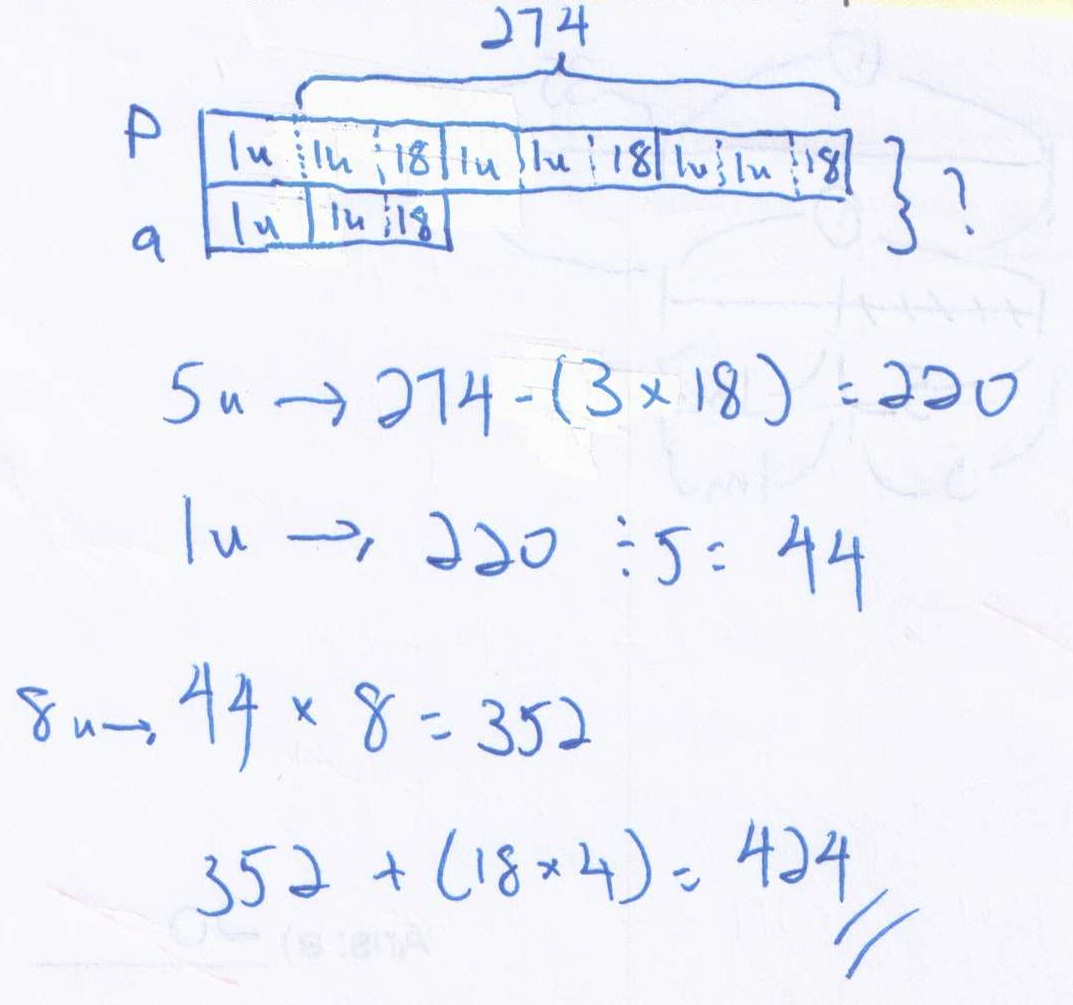 274
P 1u 1u 18 1u 1u 18 1u 1u 18 } ?
a 1u 1u 18
5u → 274 - (3 × 18) = 220
1u → 220 ÷ 5 = 44
8u → 44 × 8 = 352
352 + (18 × 4) = 424 //